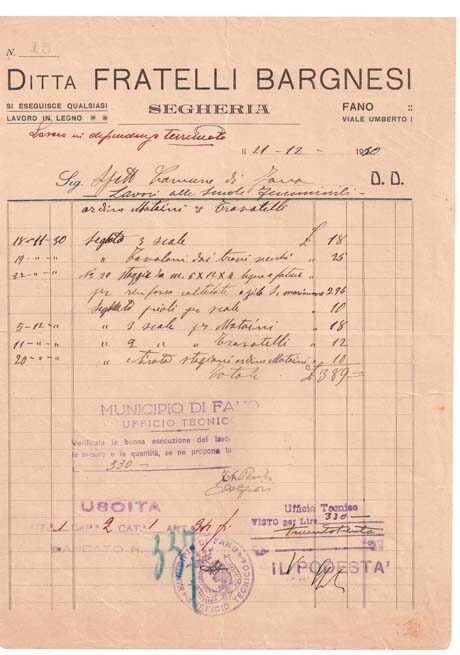 N. 15
DITTA FRATELLI BARGNESI
SI ESEGUISCE QUALSIASI
LAVORO IN LEGNO
SEGHERIA
FANO
VIALE UMBERTO I
Lavoro in dipendenza terremoto
li 21-12-1930
Sig. Comune di Fano D. D.
Lavori alle Scuole
ordine Mataini e Travatelli
18-11-30 Segato 3 scale £ 18
19-"-" " Tavoloni dai travi vecchi " 25
22-"-" N. 20 da m. 5 X 12 X 4
per rinforzo 296
Segato pioli per scale " 10
5-12-" " 3 scale per Mataini " 18
11-"-" " 2 " " Travatelli " 12
20-"-" " ordine Mataini " 10
Totale £ 389=
MUNICIPIO DI FANO
UFFICIO TECNICO
Verificata la buona esecuzione del lavo
le misure e le quantità, se ne propone la
330-
USCITA
Ufficio Tecnico
VISTO per Lire 330-
trecentotrenta
TIT. 1 CAP. 2 CAT. 1 ART.
MANDATO N. 337
MUNICIPIO FANO
UFFICIO TECNICO
IL PODESTA'